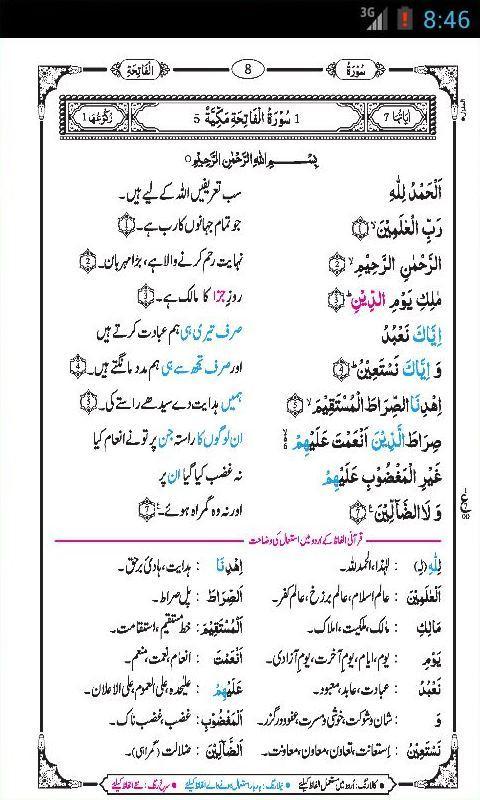 3G 8:46
سُوْرَةُ 8 اَلْفَاتِحَة
اٰيَاتُهَا 7 1 سُوْرَةُ الْفَاتِحَةِ مَكِّيَّةٌ 5 رُكُوْعُهَا 1
بِسْمِ اللّٰهِ الرَّحْمٰنِ الرَّحِيْمِ
اَلْحَمْدُ لِلّٰهِ سب تعریفیں اللہ کے لیے ہیں۔
رَبِّ الْعٰلَمِيْنَ ۙ 1 جو تمام جہانوں کا رب ہے۔ 1
الرَّحْمٰنِ الرَّحِيْمِ ۙ 2 نہایت رحم کرنے والا ہے، بڑا مہربان۔ 2
مٰلِكِ يَوْمِ الدِّيْنِ ؕ 3 روزِ جزا کا مالک ہے۔ 3
اِيَّاكَ نَعْبُدُ صرف تیری ہی ہم عبادت کرتے ہیں
وَ اِيَّاكَ نَسْتَعِيْنُ ؕ 4 اور صرف تجھ سے ہی ہم مدد مانگتے ہیں۔ 4
اِهْدِنَا الصِّرَاطَ الْمُسْتَقِيْمَ ۙ 5 ہمیں ہدایت دے سیدھے راستے کی۔ 5
صِرَاطَ الَّذِيْنَ اَنْعَمْتَ عَلَيْهِمْ ان لوگوں کا راستہ جن پر تو نے انعام کیا
غَيْرِ الْمَغْضُوْبِ عَلَيْهِمْ نہ غضب کیا گیا ان پر
وَ لَا الضَّآلِّيْنَ 7 اور نہ وہ گمراہ ہوئے۔ 7
قرآنی الفاظ کے اردو میں استعمال کی وضاحت
لِلّٰهِ (لِ) : لہٰذا، الحمدللہ۔ اِهْدِنَا : ہدایت، ہادیٔ برحق۔
اَلْعٰلَمِيْنَ : عالم اسلام، عالم برزخ، عالم کفر۔ اَلصِّرَاطَ : پل صراط۔
مَالِكِ : مالک، ملکیت، املاک۔ اَلْمُسْتَقِيْمَ : خط مستقیم، استقامت۔
يَوْمِ : یوم، ایام، یوم آخرت، یوم آزادی۔ اَنْعَمْتَ : انعام، نعمت، منعم۔
نَعْبُدُ : عبادت، عابد، معبود۔ عَلَيْهِمْ : علیحدہ، علی العموم، علی الاعلان۔
وَ : شان و شوکت، خوشی و مسرت، عفو و درگزر۔ اَلْمَغْضُوْبِ : غضب، غضب ناک۔
نَسْتَعِيْنُ : استعانت، تعاون، معاون، معاونت۔ اَلضَّآلِّيْنَ : ضلالت (گمراہی)۔